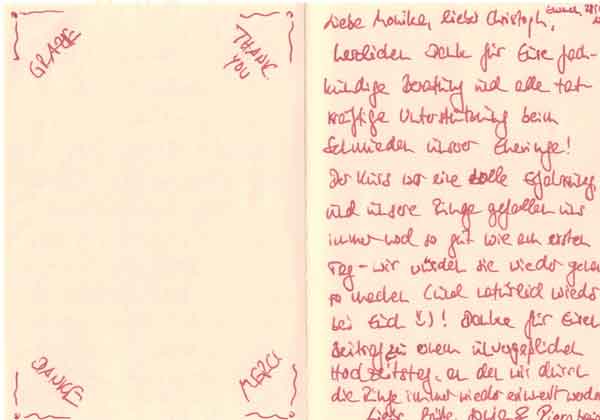 GRAZIE
THANK
YOU
DANKE
MERCI
Liebe Monika, lieber Christoph,
herzlichen Dank für Eure fach-
kundige Beratung und alle tat-
kräftige Unterstützung beim
Schmieden unserer Eheringe!
Der Kurs war eine tolle Erfahrung
und unsere Ringe gefallen uns
immer noch so gut wie am ersten
Tag - wir würden sie wieder genau
so machen (und natürlich wieder
bei Euch :)! Danke für Euren
Beitrag zu einem unvergeßlichen
Hochzeitstag, an den wir durch
die Ringe immer wieder erinnert werden
Liebe Grüße